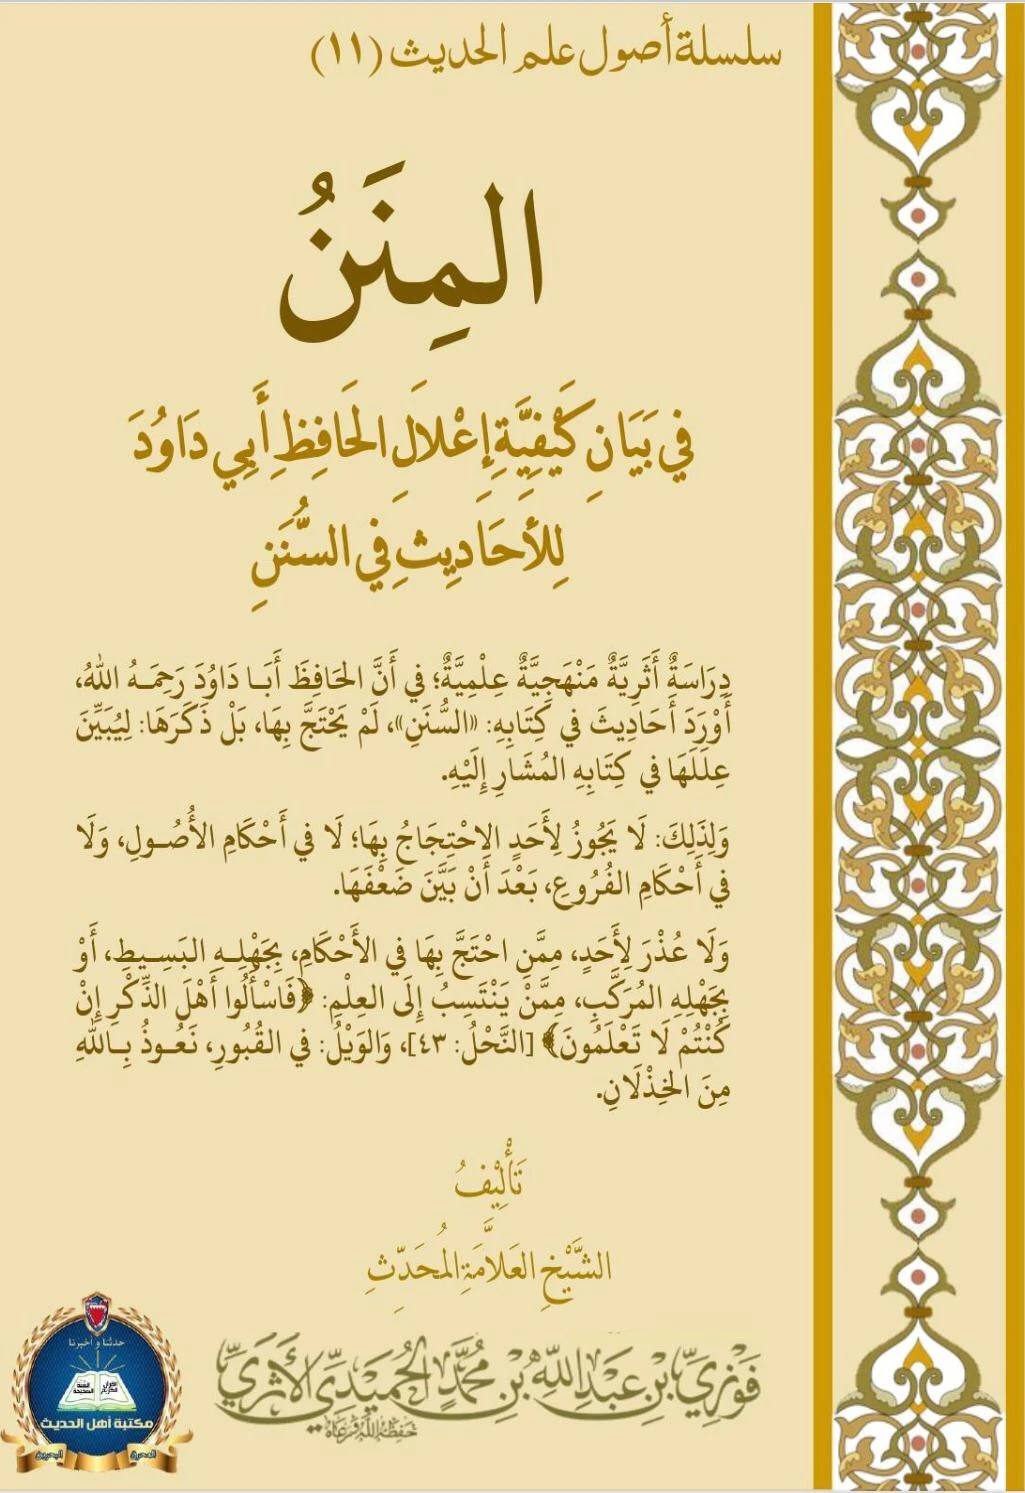 سلسلة أصول علم الحديث (١١)
المِنَنُ
فِي بَيَانِ كَيْفِيَّةِ إِعْلَالِ الحَافِظِ أَبِي دَاوُدَ
لِلأَحَادِيثِ فِي السُّنَنِ
دِرَاسَةٌ أَثَرِيَّةٌ مَنْهَجِيَّةٌ عِلْمِيَّةٌ؛ في أَنَّ الحَافِظَ أَبَا دَاوُدَ رَحِمَهُ اللهُ،
أَوْرَدَ أَحَادِيثَ في كِتَابِهِ: «السُّنَنِ»، لَمْ يَحْتَجَّ بِهَا، بَلْ ذَكَرَهَا: لِيُبَيِّنَ
عِلَلَهَا في كِتَابِهِ المُشَارِ إِلَيْهِ.
وَلِذَلِكَ: لَا يَجُوزُ لِأَحَدٍ الِاحْتِجَاجُ بِهَا؛ لَا في أَحْكَامِ الأُصُولِ، وَلَا
في أَحْكَامِ الفُرُوعِ، بَعْدَ أَنْ بَيَّنَ ضَعْفَهَا.
وَلَا عُذْرَ لِأَحَدٍ، مِمَّنِ احْتَجَّ بِهَا في الأَحْكَامِ، بِجَهْلِهِ البَسِيطِ، أَوْ
بِجَهْلِهِ المُرَكَّبِ، مِمَّنْ يَنْتَسِبُ إِلَى العِلْمِ: ﴿فَاسْأَلُوا أَهْلَ الذِّكْرِ إِنْ
كُنْتُمْ لَا تَعْلَمُونَ﴾ [النَّحْلُ: ٤٣]، وَالوَيْلُ: في القُبُورِ، نَعُوذُ بِاللهِ
مِنَ الخِذْلَانِ.
تَأْلِيْفُ
الشَّيْخِ العَلاَّمَةِ المُحَدِّثِ
فَوْزِيِّ بْنِ عَبْدِ اللَّهِ بْنِ مُحَمَّدٍ الحُمَيْدِيِّ الأَثَرِيِّ
حَفِظَهُ اللَّهُ وَرَعَاهُ
حدثنا و أخبرنا
مكتبة أهل الحديث
المحرق
البحرين